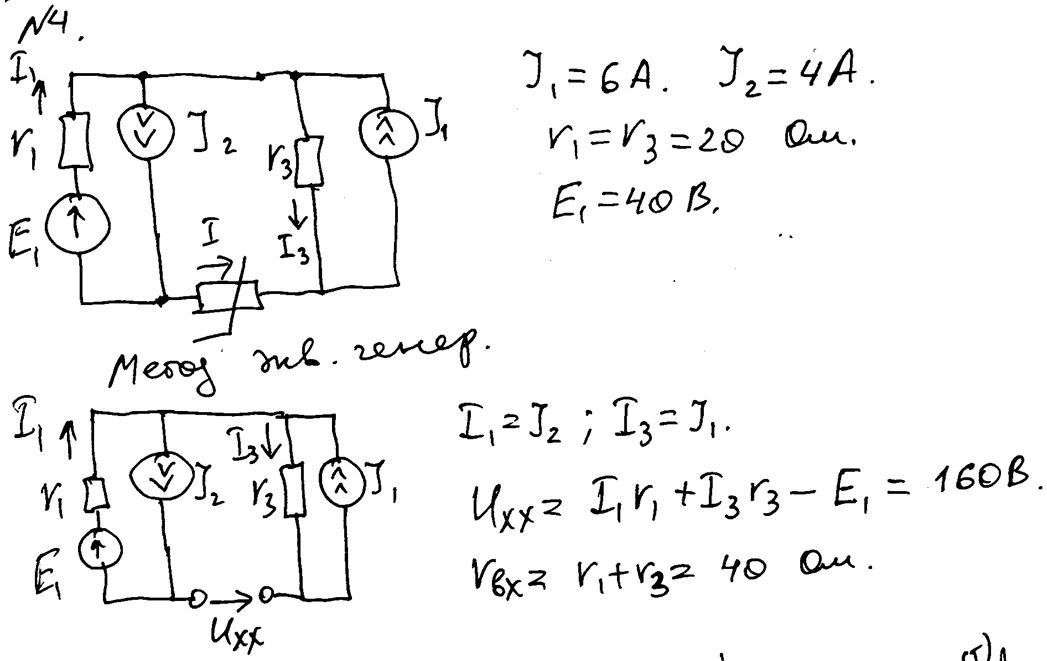 №4.
I₁ r₁ E₁ J₂ r₃ I₃ J₁ I
J₁ = 6 А. J₂ = 4 А.
r₁ = r₃ = 20 Ом.
E₁ = 40 В.
Метод экв. генер.
I₁ r₁ E₁ J₂ I₃ r₃ J₁ Uхх
I₁ = J₂ ; I₃ = J₁.
Uхх = I₁r₁ + I₃r₃ − E₁ = 160 В.
rвх = r₁ + r₃ = 40 Ом.